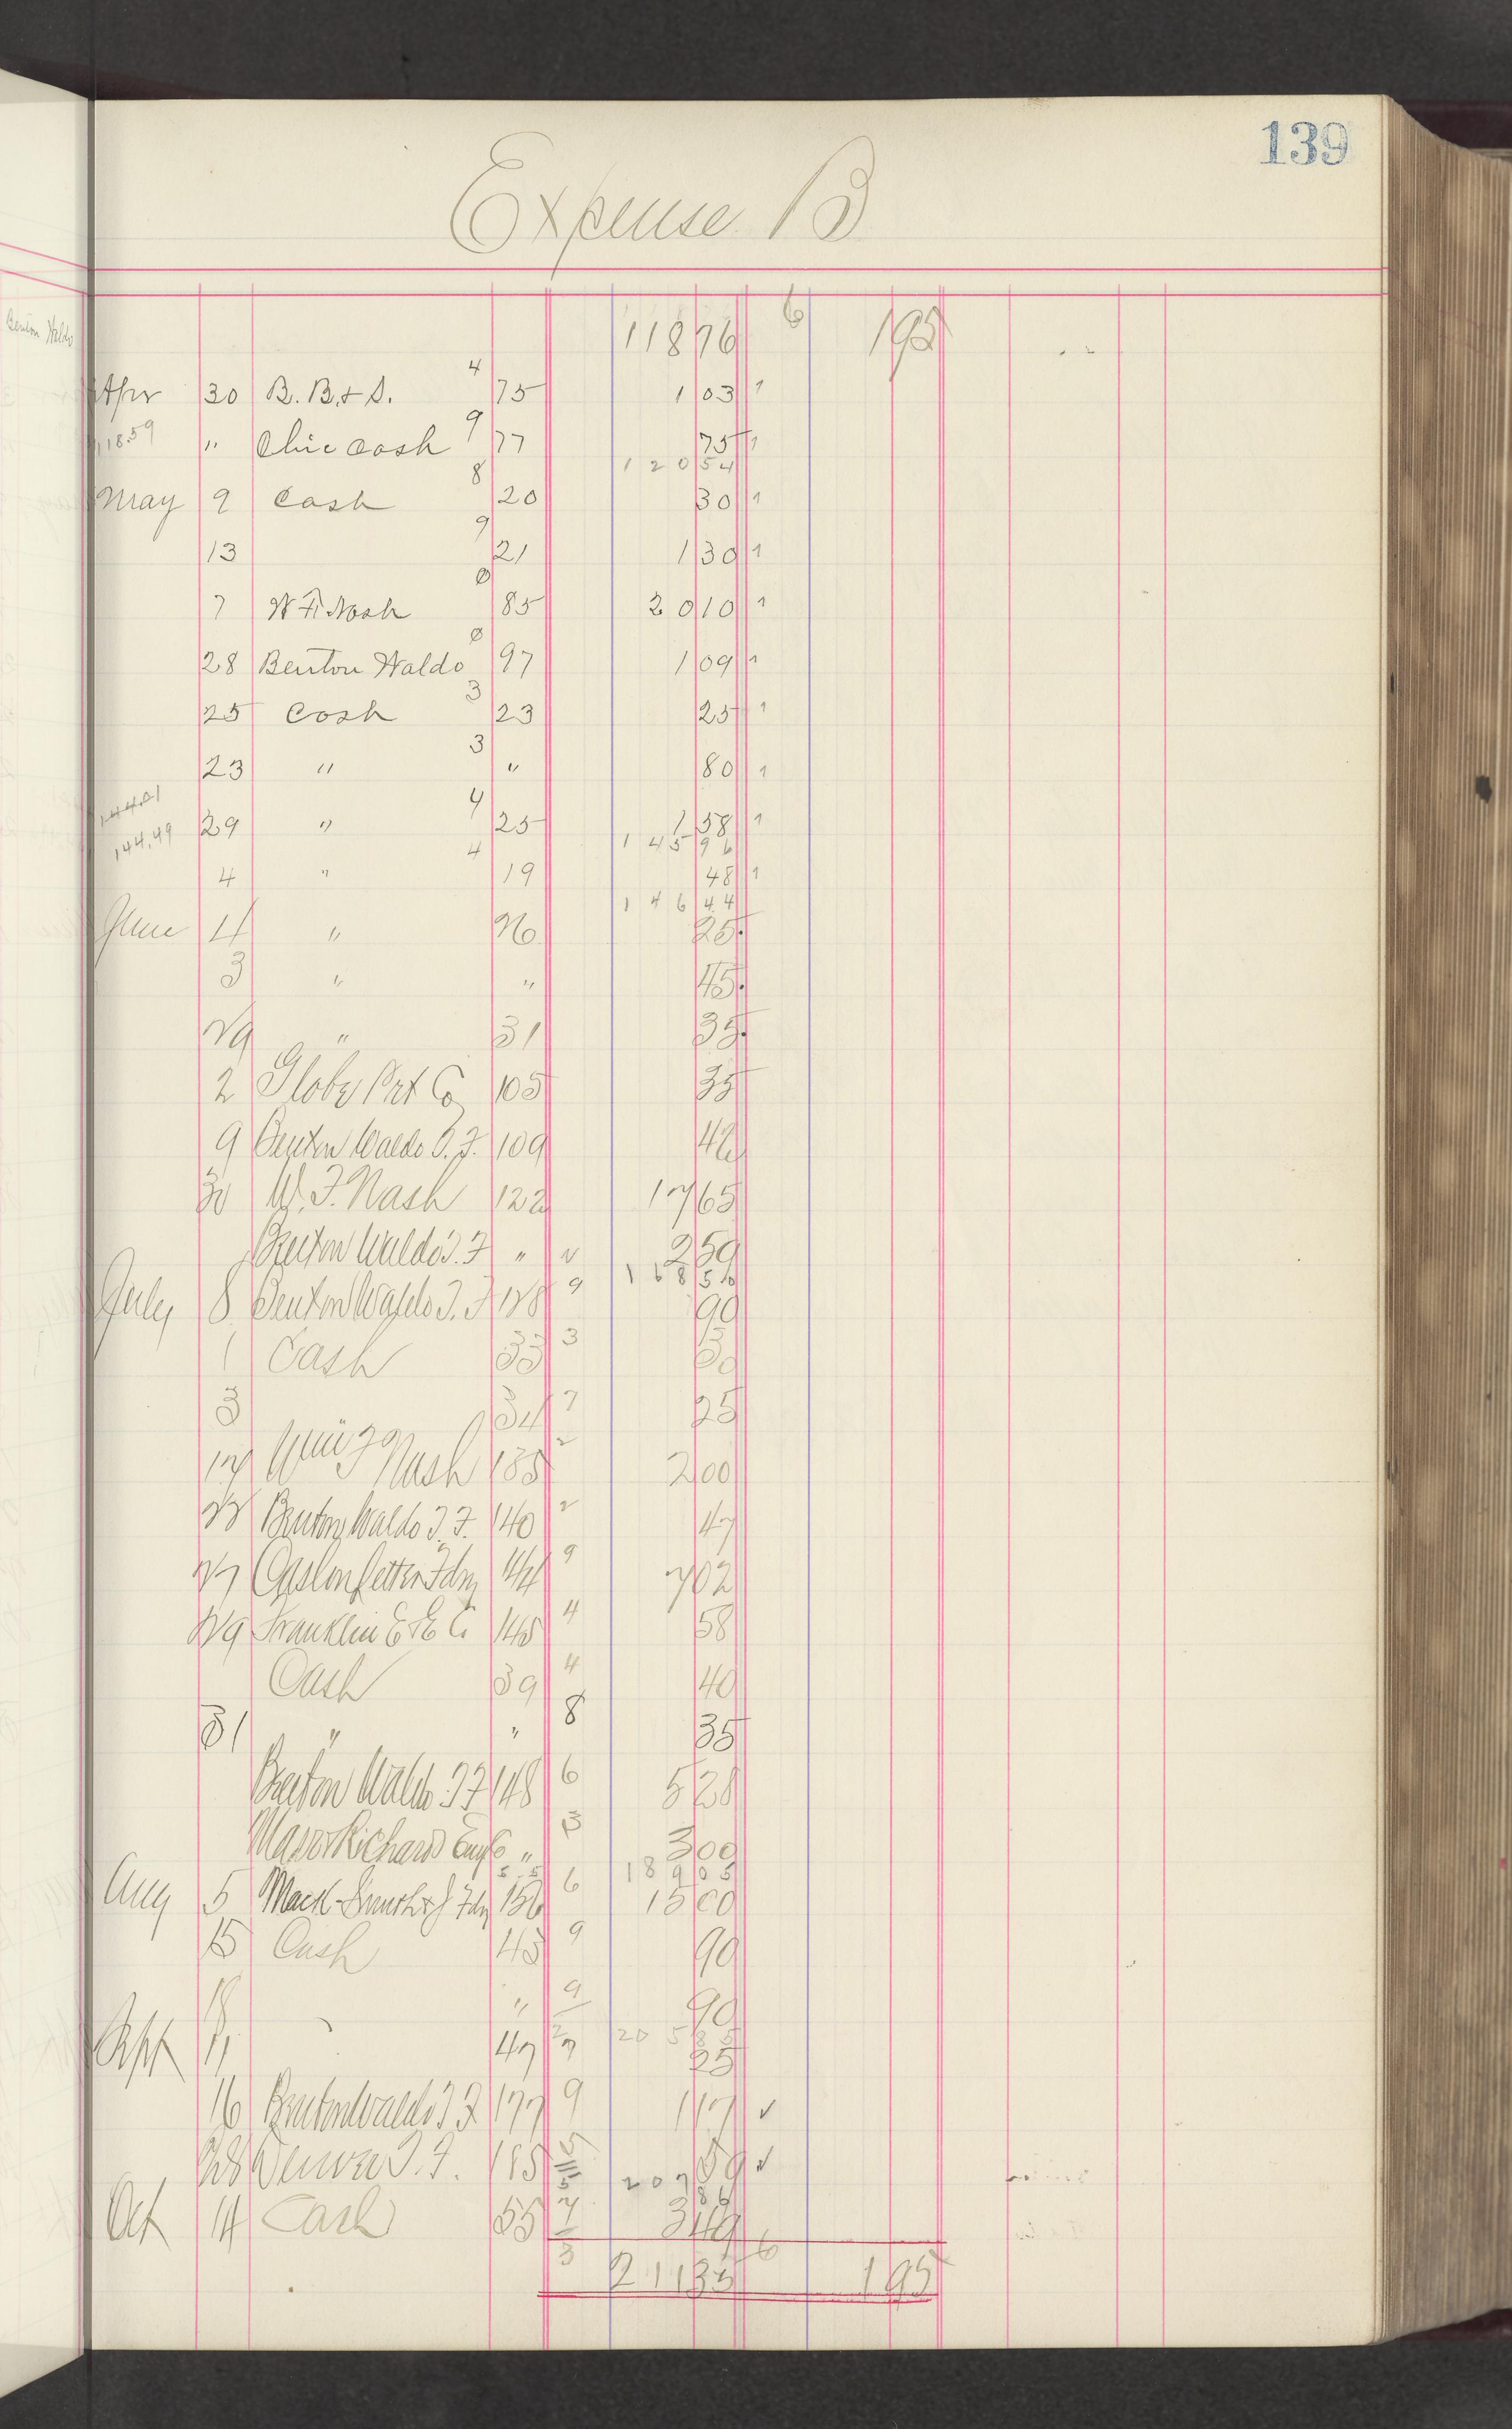 139
Expense B
118 76 6 1 95
Apr 30 B. B. & S. 4 75 1 03 1
" Chic Cash 9 77 75 1
1 2 0 54
May 9 Cash 8 20 30 1
13 9 21 1 30 1
7 W F Nash 0 85 20 10 1
28 Benton Waldo 0 97 1 09 1
25 Cash 3 23 25 1
23 " 3 " 80 1
144.01
29 " 4 25 1 58 1
144.49
1 45 96
4 " 4 19 48 1
1 4 6 44
June 4 " 26 25
3 " " 45
29 " 31 35
2 Globe Prt Co 105 35
9 Benton Waldo T. F. 109 42
30 W. F. Nash 122 17 65
Benton Waldo T. F " 2 59
1 6 8 50
July 8 Benton Waldo T. F 128 9 90
1 Cash 33 3 30
3 34 7 25
Nash 135 2 2 00
Benton Waldo T. F. 140 2 47
27 144 9 7 02
29 Franklin E & E Co 145 4 58
Cash 39 4 40
31 " " 8 35
Benton Waldo T F 148 6 5 28
Manz & Richards Eng Co " 3 3 00
1 8 9 05
Aug 5 156 6 15 00
15 Cash 45 9 90
18 " 9 90
20 5 85
Sept 11 47 7 25
16 Benton Waldo T F 177 9 1 17 ✓
28 Denver T. F. 185 59 ✓
2 0 7 86
Oct 14 Cash 55 7 3 49
3 211 35 6 1 95